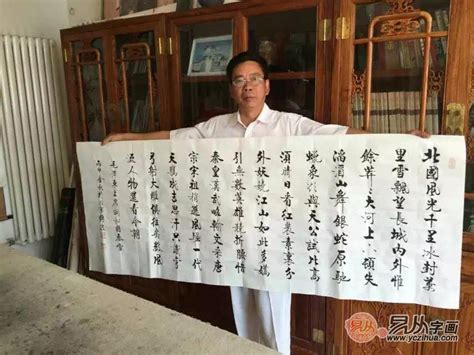 北國風光千里冰封萬
里雪飄望長城内外惟
餘莽莽大河上下頓失
滔滔山舞銀蛇原馳
蠟象欲與天公試比高
須晴日看紅裝素裹分
外妖嬈江山如此多嬌
引無數英雄競折腰惜
秦皇漢武略輸文采唐
宗宋祖稍遜風騷一代
天驕成吉思汗只識彎
弓射大雕俱往矣數風
流人物還看今朝
毛澤東主席詞沁園春雪
丙申
易从
易从字画
www.yczihua.com